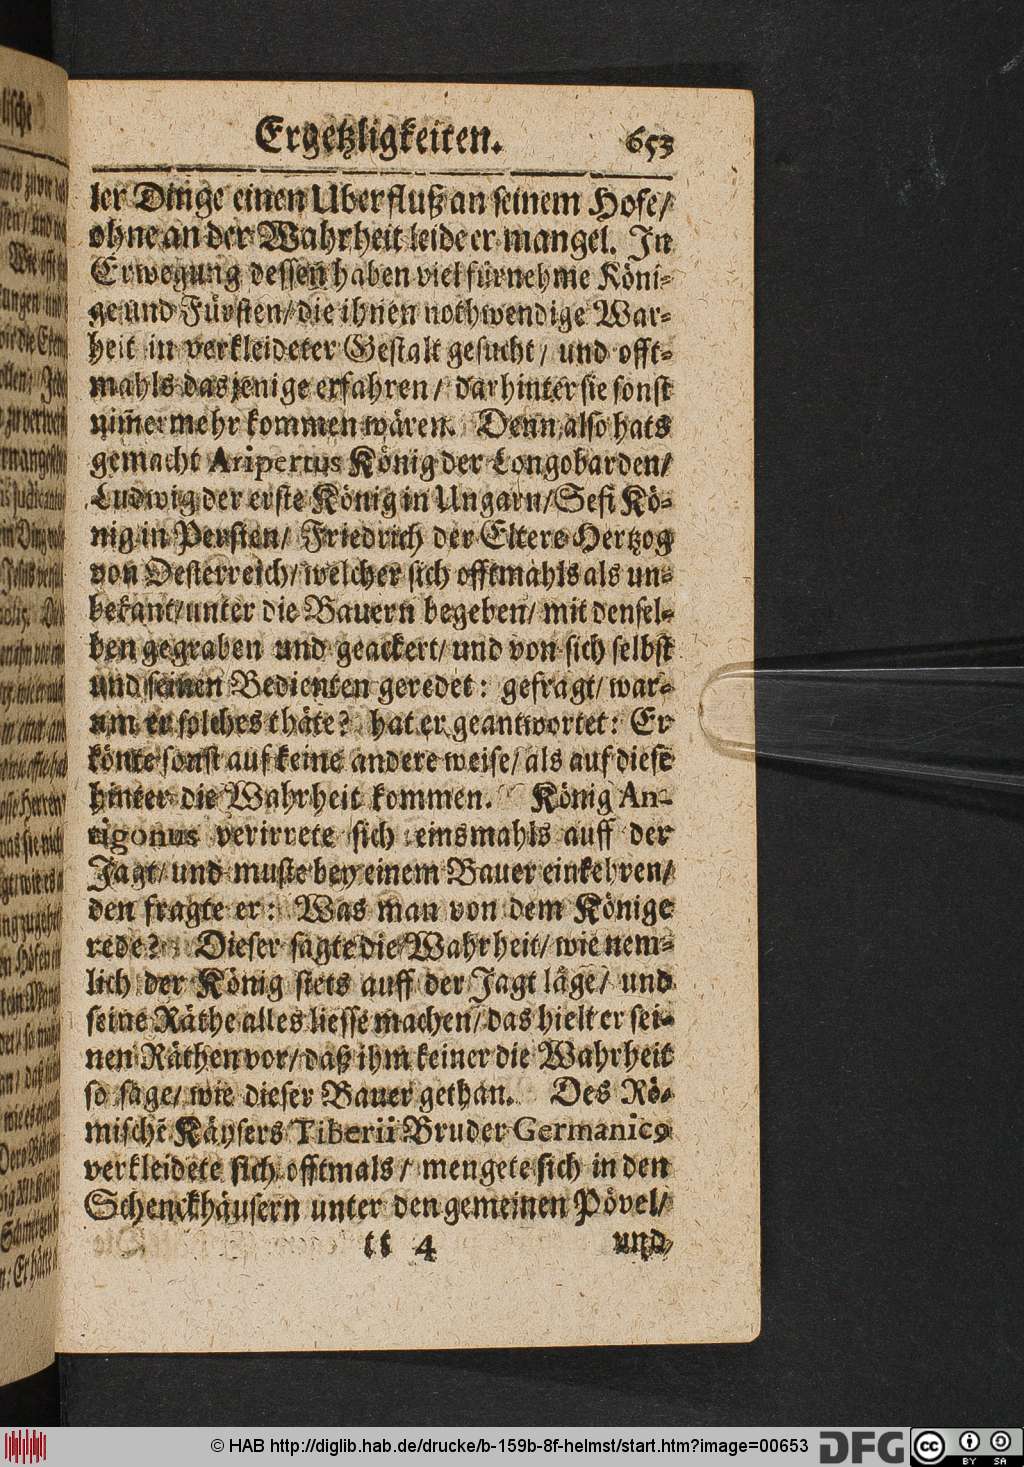 Ergetzligkeiten. 653
ler Dinge einen Uberfluß an seinem Hofe/
ohne an der Wahrheit leide er mangel. In
Erwegung dessen haben viel fürnehme Köni-
ge und Fürsten/ die ihnen nothwendige War-
heit in verkleideter Gestalt gesucht/ und offt-
mahls dasjenige erfahren/ darhinter sie sonst
nim̃ermehr kommen wären. Denn also hats
gemacht Aripertus König der Longobarden/
Ludwig der erste König in Ungarn/ Sefi Kö-
nig in Persien/ Friedrich der Eltere Hertzog
von Oesterreich/ welcher sich offtmahls als un-
bekant/ unter die Bauern begeben/ mit densel-
ben gegraben und geackert/ und von sich selbst
und seinen Bedienten geredet: gefragt/ war-
um er solches thäte? hat er geantwortet: Er
könte sonst auf keine andere weise/ als auf diese
hinter die Wahrheit kommen. König An-
tigonus verirrete sich einsmahls auff der
Jagt/ und muste bey einem Bauer einkehren/
den fragte er: Was man von dem Könige
rede? Dieser sagte die Wahrheit/ wie nem-
lich der König stets auff der Jagt läge/ und
seine Räthe alles liesse machen/ das hielt er sei-
nen Räthen vor/ daß ihm keiner die Wahrheit
so sage/ wie dieser Bauer gethan. Des Rö-
mischẽ Käysers Tiberii Bruder Germanicꝰ
verkleidete sich offtmals/ mengete sich in den
Schenckhäusern unter den gemeinen Pövel/
tt 4 und
© HAB http://diglib.hab.de/drucke/b-159b-8f-helmst/start.htm?image=00653 DFG cc BY SA